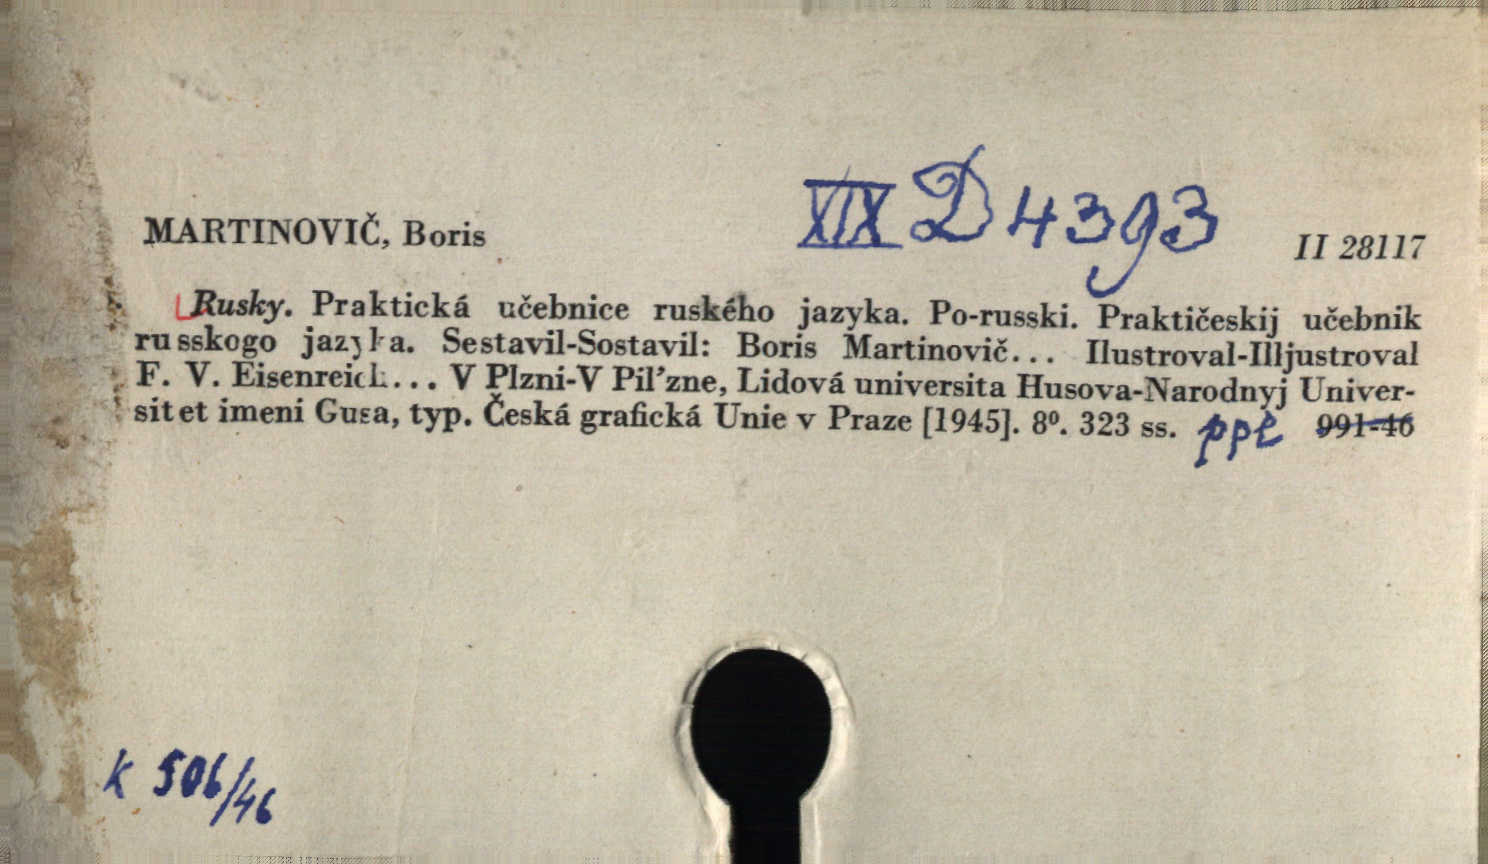 XIX D 4393
MARTINOVIČ, Boris
II 28117
Rusky. Praktická učebnice ruského jazyka. Po-russki. Praktičeskij učebnik
russkogo jazyka. Sestavil-Sostavil: Boris Martinovič... Ilustroval-Illjustroval
F. V. Eisenreich... V Plzni-V Pil’zne, Lidová universita Husova-Narodnyj Univer-
sitet imeni Gusa, typ. Česká grafická Unie v Praze [1945]. 8⁰. 323 ss. ppl 991-46
k 506/46